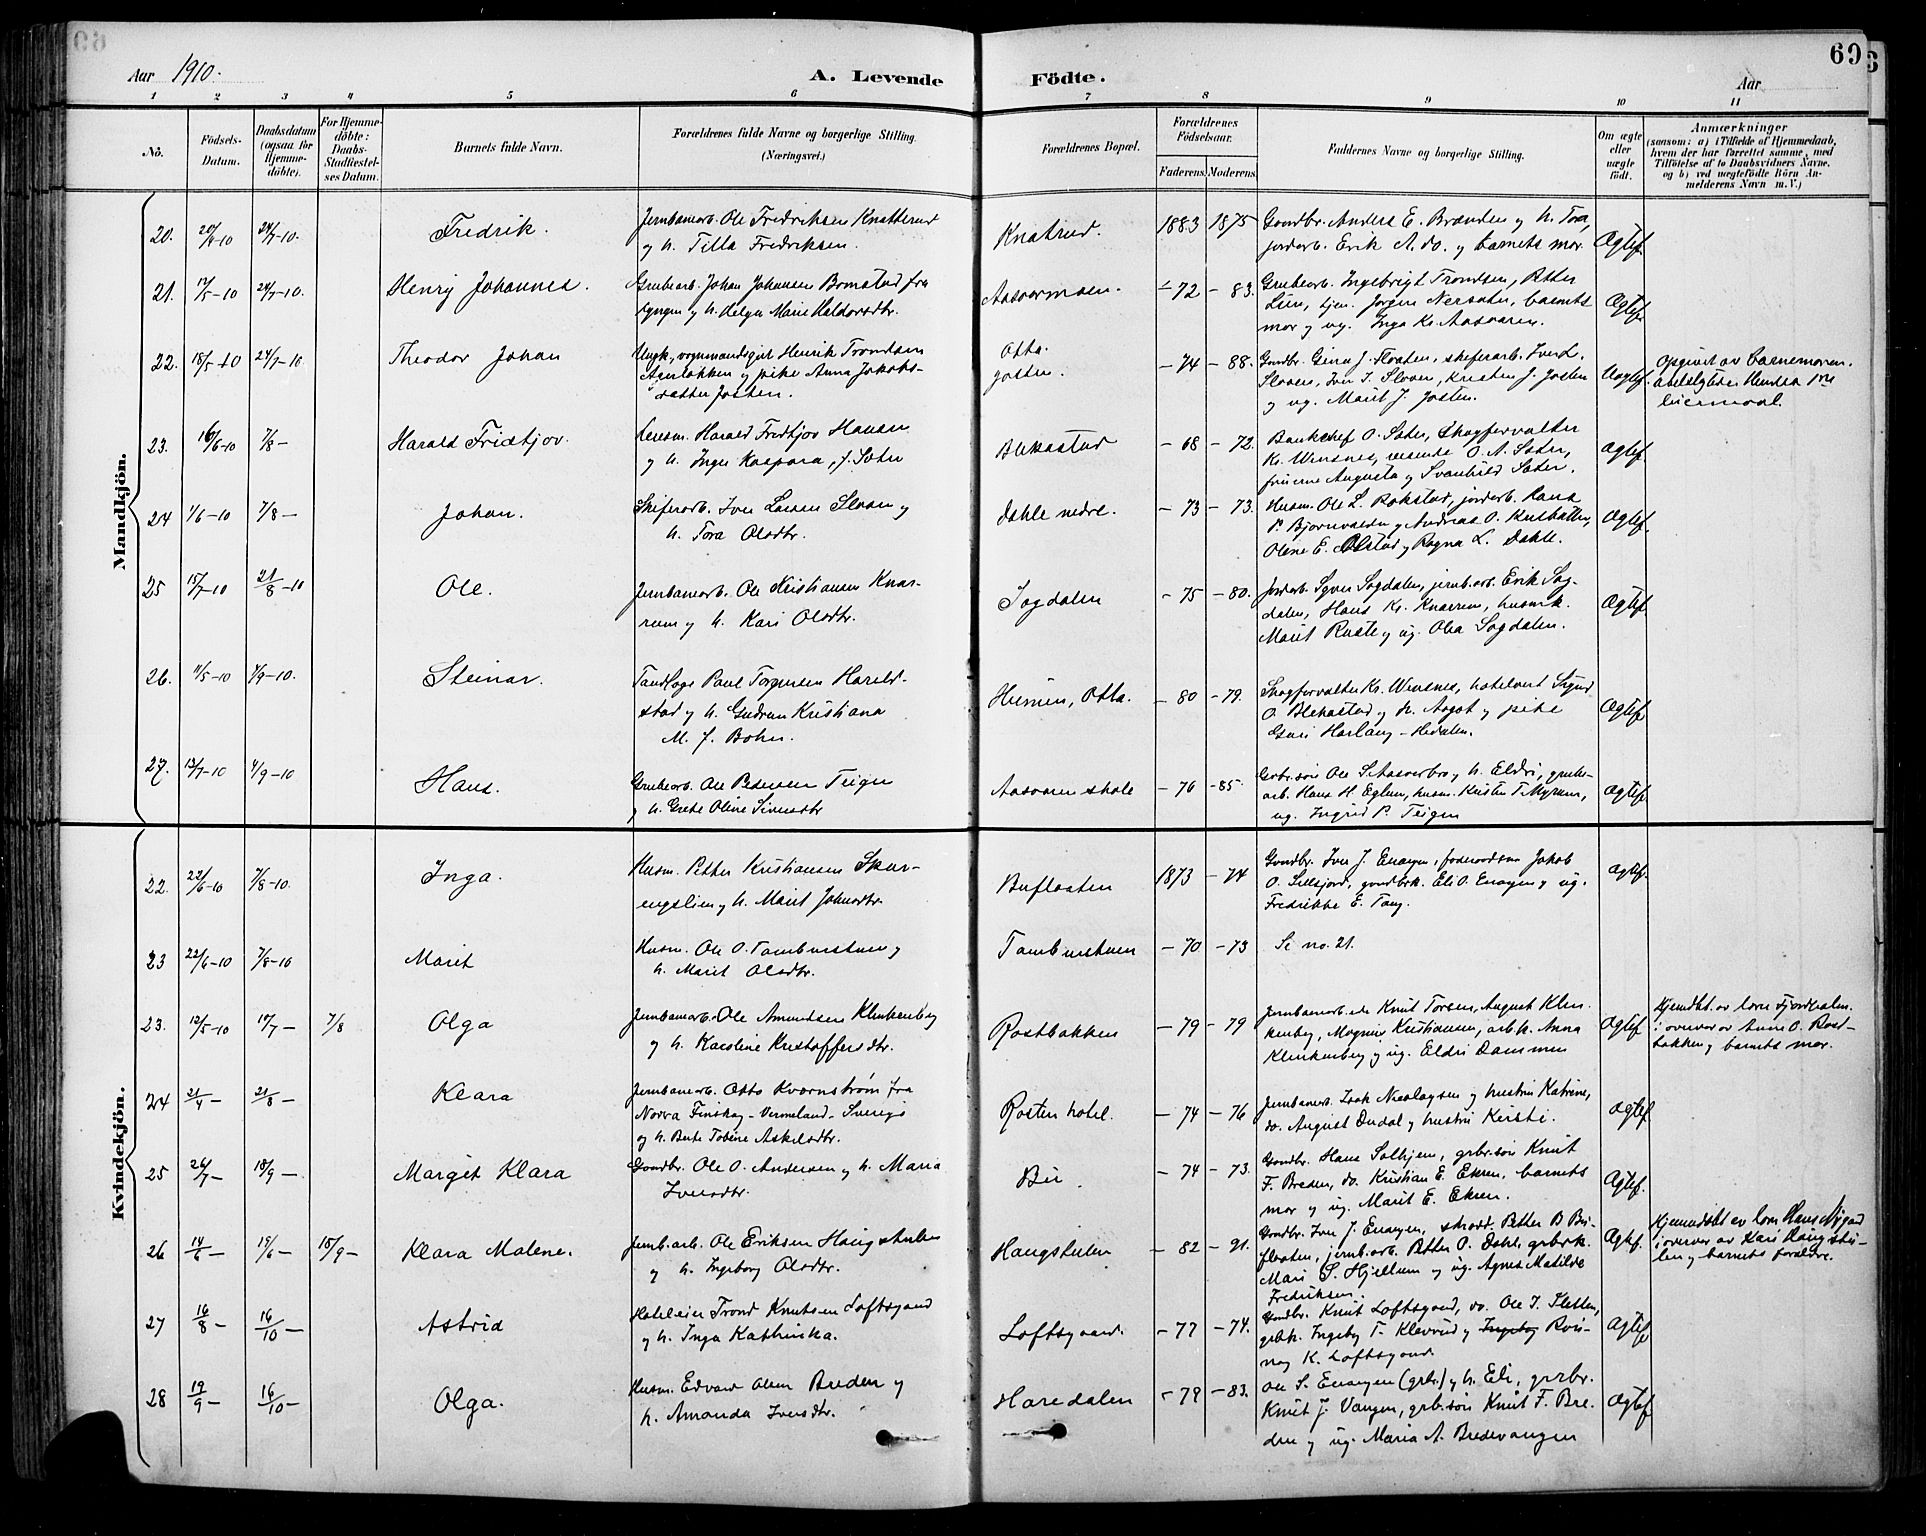 69
Aar 1910.
A. Levende Födte.
Aar
1 2 3 4 5 6 7 8 9 10 11
No.
Födsels-Datum.
Daabsdatum (ogsaa for Hjemmedöbte).
For Hjemmedöbte: Daabs-Stadfæstelses Datum.
Barnets fulde Navn.
Forældrenes fulde Navne og borgerlige Stilling.
(Næringsvei.)
Forældrenes Bopæl.
Forældrenes Födselsaar.
Faderens. Moderens.
Faddernes Navne og borgerlige Stilling.
Om ægte eller uægte födt.
Anmærkninger
(saasom: a) i Tilfælde af Hjemmedaab,
hvem der har forrettet samme, med
Tilföielse af to Daabsvidners Navne,
og b) ved uægtefödte Börn An-
melderens Navn m. V.)
Mandkjön.
20. 24/7-10. Fredrik. Jernbanearb. Ole Fredriksen Knatterud
y h. Tilla Fredriksen.
Knatrud. 1883 1875
Gaardbr. Anders E. Brænden y h. Tora,
jordarb. Erik A. do. y barnets mor.
Ægtef.
21. 12/5-10 24/7-10. Henry Johannes. Grubearb. Johan Johansen Bomstad fra
Lyngen y h. Helga Marie Haldorsdtr.
Aasoarmoen. -72 -83.
Grubearb. Ingebrigt Trondsen, Petter
Lien, tjen. Jørgen Nersæter, barnets
mor y ug. Inga Kr. Aasoaren.
Ægtef.
22. 18/5-10 24/7-10 Theodor Johan Ungk., vognmandsgut Henrik Trondsen
Agerløkken y pike Anna Jakobs-
datter Josten.
Otta.
Josten. -74 -88.
Gaardbr. Gunn J. Floaten, skiferarb. Iver L.
Sloaen, Iver I. Sloaen, Kristen J. Josten
y ug. Marit J. Josten.
Uægtef.
Opgivet av barnemoren.
23. 16/6-10 7/8- Harald Fridtjov. Lensm. Harald Fridtjov Hansen
y h. Inga Kaspara, f. Sæter
Blekastad -68 -72.
Bankchef O. Sæter, skogforvalter
Kr. Wensnes, O. A. Sæter,
fruerne Augusta y Svanhild Sæter.
Ægtef.
24 1/6-10 7/8- Johan. Skiferarb. Iver Larsen Sloaen y
h. Tora Olsdtr.
Dahle nedre. -73 -73.
Husm. Ole L. Bakstad, jordarb. Hans
P. Bjørnvolden y Andreas O. Krusballen,
Olene E. Olstad y Ragna L. Dahle.
Ægtef.
25 15/7-10 21/8-10 Ole. Jernbanearb. Ole Kristiansen Knar-
rum y h. Kari Olsdtr.
Sogdalen -75 -80.
Jordarb. Syver Sogdalen, jernb.arb. Erik Sog-
dalen, Hans Kr. Knarrum, husmk.
Marit Ruste y ug. Olea Sogdalen.
Ægtef.
26. 11/5-10 4/9-10. Steinar. Tandlæge Paul Torgersen Harild-
stad y h. Gudrun Kristiana
M. f. Bohn.
Heimen, Otta. -80 -79.
Skogforvalter Kr. Wensnes, hotelvert Sigurd
O. Blekastad y h. Aagot y pike
Guri Harlaug-Hedalen.
Ægtef
27. 13/7-10 4/9-10 Hans. Grubearb. Ole Pedersen Teigen
y h. Grete Oline Simensdtr
Aasoaren skole -76 -85.
Grbr.søn Ole S. Aasoarbro y h. Eldri, grube-
arb. Hans H. Eglum, husm. Kristen T. Myrum,
ug. Ingrid P. Teigen
Ægtef
Kvindekjön.
22. 22/6-10 7/8-10. Inga. Husm. Petter Kristiansen Skur-
engslien y h. Marit Johnsdtr.
Bufloaten 1873 -74
Gaardbr. Iver J. Enargen, foderaadsm Jakob
O. Selsjord, gaardbrk. Eli O. Enargen y ug.
Fredrikke E. Tang.
Ægtef.
23 22/6-10 7/8-10 Marit Husm. Ole O. Tamburstuen y
h. Marit Olsdtr.
Tamburstuen -70 -73 Se no. 21.
23. 12/5-10 17/7- 7/8 Olga Jernbanearb. Ole Amundsen Klinkenberg
y h. Karoline Kristoffersdtr.
Rostbakken -79 -79
Jernbanearb.ne Knut Torsen, August Klin-
kenberg, Magnus Kristiansen, arb.h. Anna
Klinkenberg y ug. Eldri Dammen
Ægtef.
Hjemdbt. av
i overvær av Anne O. Rost-
bakken y barnets mor.
24 21/4- 21/8- Klara Jernbanearb. Otto Kvarnstrøm fra
Norra Finskog-Vermeland-Sverige
og h. Berte Tobine Askilsdtr.
Rosten hotel. -74 -76
Jernbanearb. Isak Nicolaysen y hustru Katrine,
do. August Dudal y hustru Kirsti.
Ægtef
25 26/7- 18/9- Margit Klara Gaardbr. Ole O. Andersen y h. Maria
Iversdtr.
Bu. -74 -73.
Gaardbr. Hans Solhjem, grbr.søn Knut
F. Breden, do. Kristian E. Ekren, barnets
mor y ug. Marit E. Ekren.
Ægtef.
26 14/6- 19/6- 18/9- Klara Malene. Jernb.arb. Ole Eriksen Haugstulen
y h. Ingeborg Olsdtr.
Haugstulen -82 -91.
Gaardbr. Iver J. Enargen, skrædd. Petter B. Bu-
floaten, jernb.arb. Petter O. Dahl, grbrk.
Mari S. Hjellum y ug. Agnes Matilde
Fredriksen.
Ægtef.
Hjemmedbt av Hans Nygard
i overvær av Kari Haugstu-
len y barnets forældre.
27 16/8- 16/10- Astrid Hoteleier Trond Knutsen Loftsgaard
y h. Inga Kathinka.
Loftsgaard. -77 -74.
Gaardbr. Knut Loftsgaard, do. Ole I. Sletten,
grbk. Ingebg T. Klevrud y Ingebog Røn-
naug K. Loftsgaard.
Ægtef
28 19/9- 16/10- Olga. Husm. Edvard Olsen Breden y
h. Amanda Iversdtr.
Haredalen -79 -83.
Ole S. Enargen (grbr.) y h. Eli, grbr.
Knut J. Vangen, grbr.søn Knut F. Bre-
den y ug. Maria A. Bredevangen
Ægtef